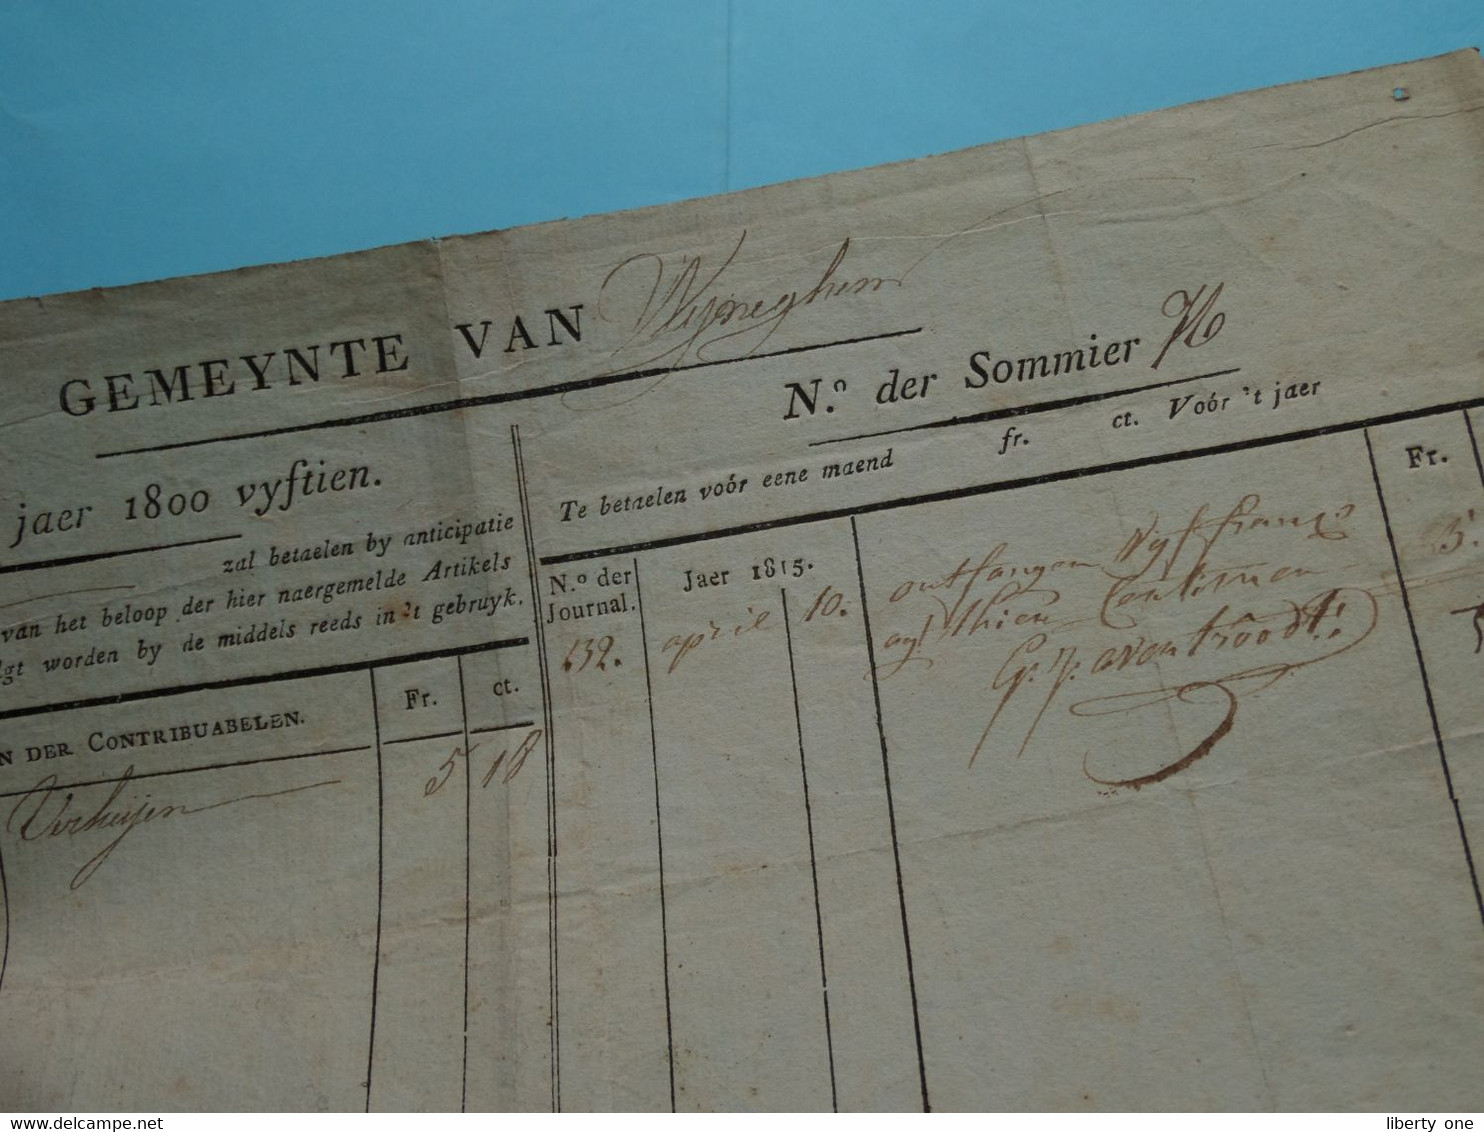 GEMEYNTE VAN Wyneghem
N.º der Sommier
jaer 1800 vyftien.
Te betaelen voór eene maend fr. ct. Voór 't jaer
zal betaelen by anticipatie
van het beloop der hier naergemelde Artikels
lgt worden by de middels reeds in 't gebruyk.
N DER CONTRIBUABELEN. Fr. ct.
Verheijen 5 18
N.º der Journal. Jaer 1815. Fr.
432. april 10. ontfangen Vyf francs 5.
agthien Centimen
liberty one
www.delcampe.net